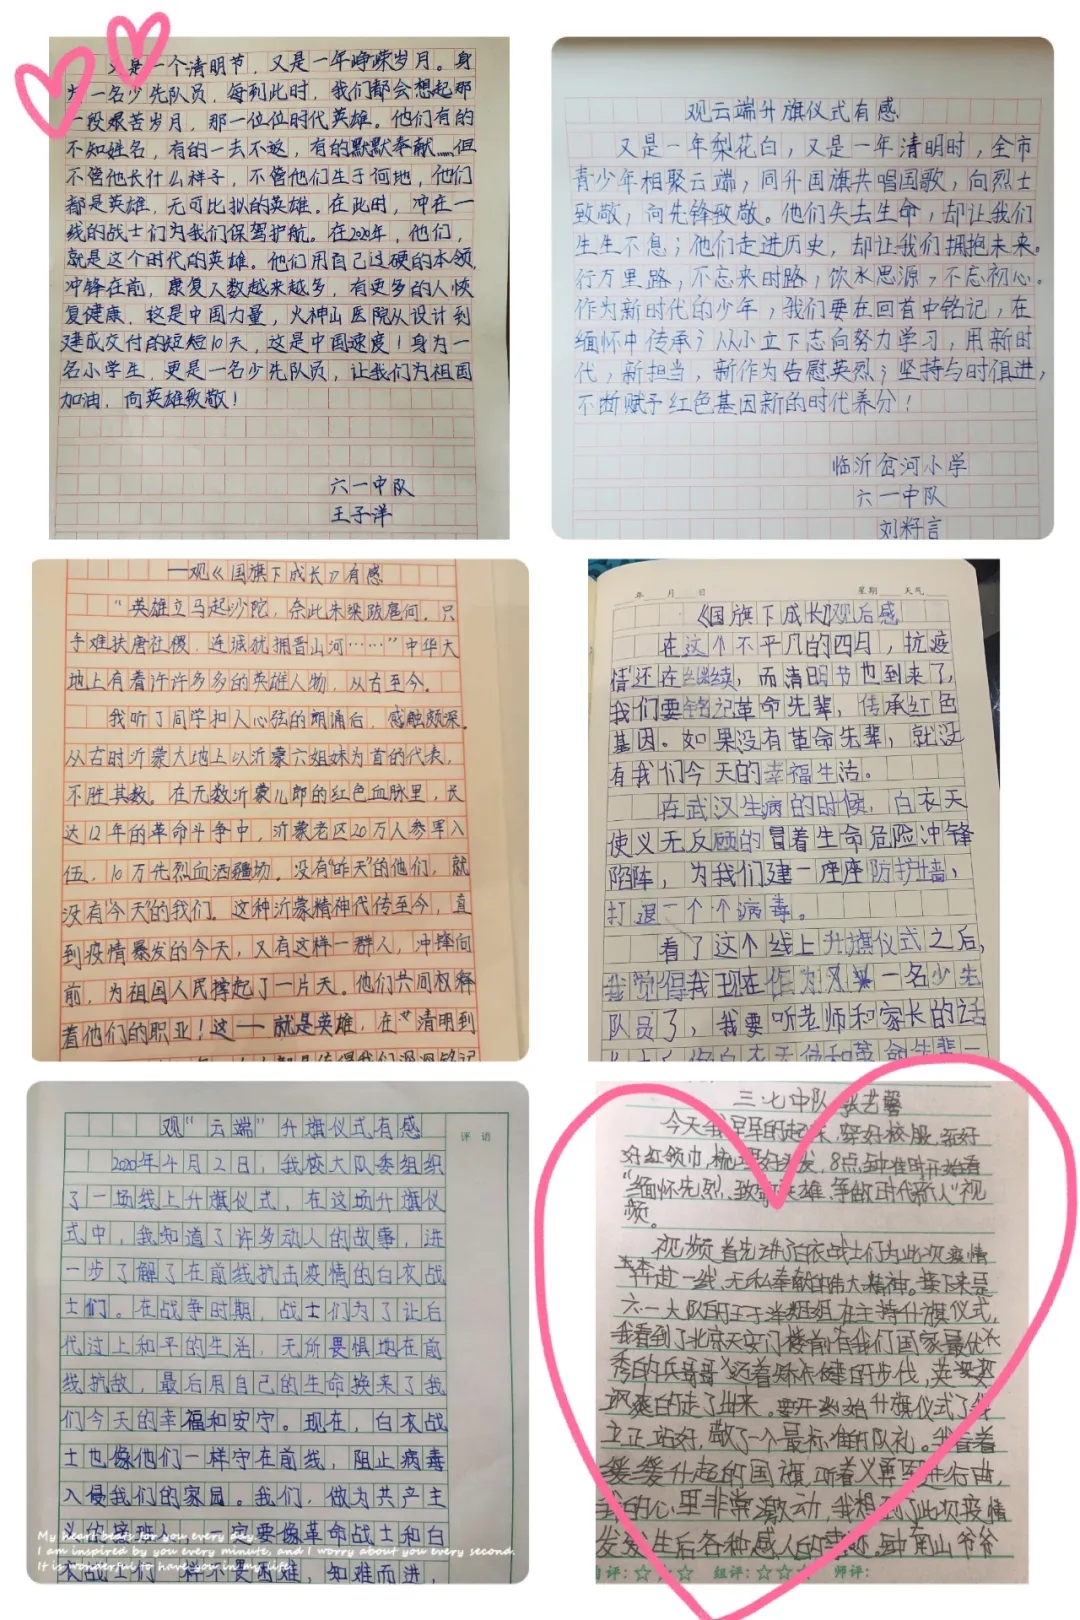 又是一个清明节，又是一年峥嵘岁月。身
为一名少先队员，每到此时，我们都会想起那
一段艰苦岁月，那一位位时代英雄。他们有的
不知姓名，有的一去不返，有的默默奉献……但
不管他长什么样子，不管他们生于何地，他们
都是英雄，无可比拟的英雄。在此时，冲在一
线的战士们为我们保驾护航。在2020年，他们，
就是这个时代的英雄。他们用自己过硬的本领，
冲锋在前，康复人数越来越多，有更多的人恢
复健康，这是中国力量，火神山医院从设计到
建成交付的短短10天，这是中国速度！身为一
名小学生，更是一名少先队员，让我们为祖国
加油，向英雄致敬！
六一中队
王子洋
观云端升旗仪式有感
又是一年梨花白，又是一年清明时，全市
青少年相聚云端，同升国旗共唱国歌，向烈士
致敬，向先锋致敬。他们失去生命，却让我们
生生不息；他们走进历史，却让我们拥抱未来。
行万里路，不忘来时路，饮水思源，不忘初心。
作为新时代的少年，我们要在回首中铭记，在
缅怀中传承；从小立下志向努力学习，用新时
代，新担当，新作为告慰英烈；坚持与时俱进，
不断赋予红色基因新的时代养分！
临沂岔河小学
六一中队
刘籽言
—观《国旗下成长》有感
“英雄立马起沙陀，奈此朱梁跋扈何，只
手难扶唐社稷，连城犹拥晋山河……”中华大
地上有着许许多多的英雄人物，从古至今。
我听了同学扣人心弦的朗诵后，感触颇深。
从古时沂蒙大地上以沂蒙六姐妹为首的代表，
不胜其数。在无数沂蒙儿郎的红色血脉里，长
达12年的革命斗争中，沂蒙老区20万人参军入
伍，10万先烈血洒疆场。没有“昨天”的他们，就
没有“今天”的我们。这种沂蒙精神代传至今，直
到疫情暴发的今天，又有这样一群人，冲锋向
前，为祖国人民撑起了一片天。他们共同诠释
着他们的职业！这一一就是英雄，在“清明到
年 月 日 星期 天气
《国旗下成长》观后感
在这个不平凡的四月，抗疫
情还在继续，而清明节也到来了，
我们要铭记革命先辈，传承红色
基因。如果没有革命先辈，就没
有我们今天的幸福生活。
在武汉生病的时候，白衣天
使义无反顾的冒着生命危险冲锋
陷阵，为我们建一座座防护墙，
打退一个个病毒。
看了这个线上升旗仪式之后，
我觉得我现在作为一名少先
队员了，我要听老师和家长的话
观“云端”升旗仪式有感
评语
2020年4月2日，我校大队委组织
了一场线上升旗仪式，在这场升旗仪
式中，我知道了许多动人的故事，进
一步了解了在前线抗击疫情的白衣战
士们。在战争时期，战士们为了让后
代过上和平的生活，无所畏惧地在前
线抗敌，最后用自己的生命换来了我
们今天的幸福和安宁。现在，白衣战
士也像他们一样守在前线，阻止病毒
入侵我们的家园。我们，做为共产主
义的接班人，一定要像革命战士和白
衣战士们一样不畏困难，知难而进，
My heart beats for you every day.
I am inspired by you every minute, and I worry about you every second.
It is wonderful to have you in my life.
三.七中队 张艺馨
今天我早早的起床，穿好校服，
好红领巾，梳理好头发，8点钟准时开始看
“缅怀先烈，致敬英雄，争做时代新人”视
频。
视频首先讲了白衣战士们为此次疫情
奔赴一线，无私奉献的伟大精神。接下来是
六一大队的王子洋姐姐在主持升旗仪式，
我看到了北京天安门楼前有我们国家最优
秀的兵哥哥迈着矫健的步伐，英姿
飒爽的走了出来。要开始升旗仪式了我
立正站好，敬了一个最标准的队礼。我看着
缓缓升起的国旗，听着义勇军进行曲，
我的心里非常激动，我想到了此次疫情
发生后各种感人的事迹。钟南山爷爷
自评：☆☆☆ 组评：☆☆☆ 师评：